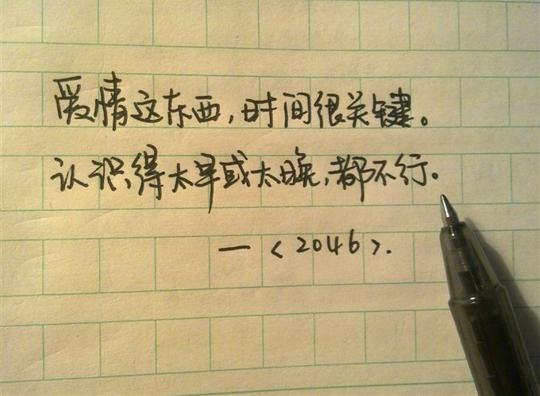 爱情这东西，时间很关键。
认识得太早或太晚，都不行。
—<2046>.